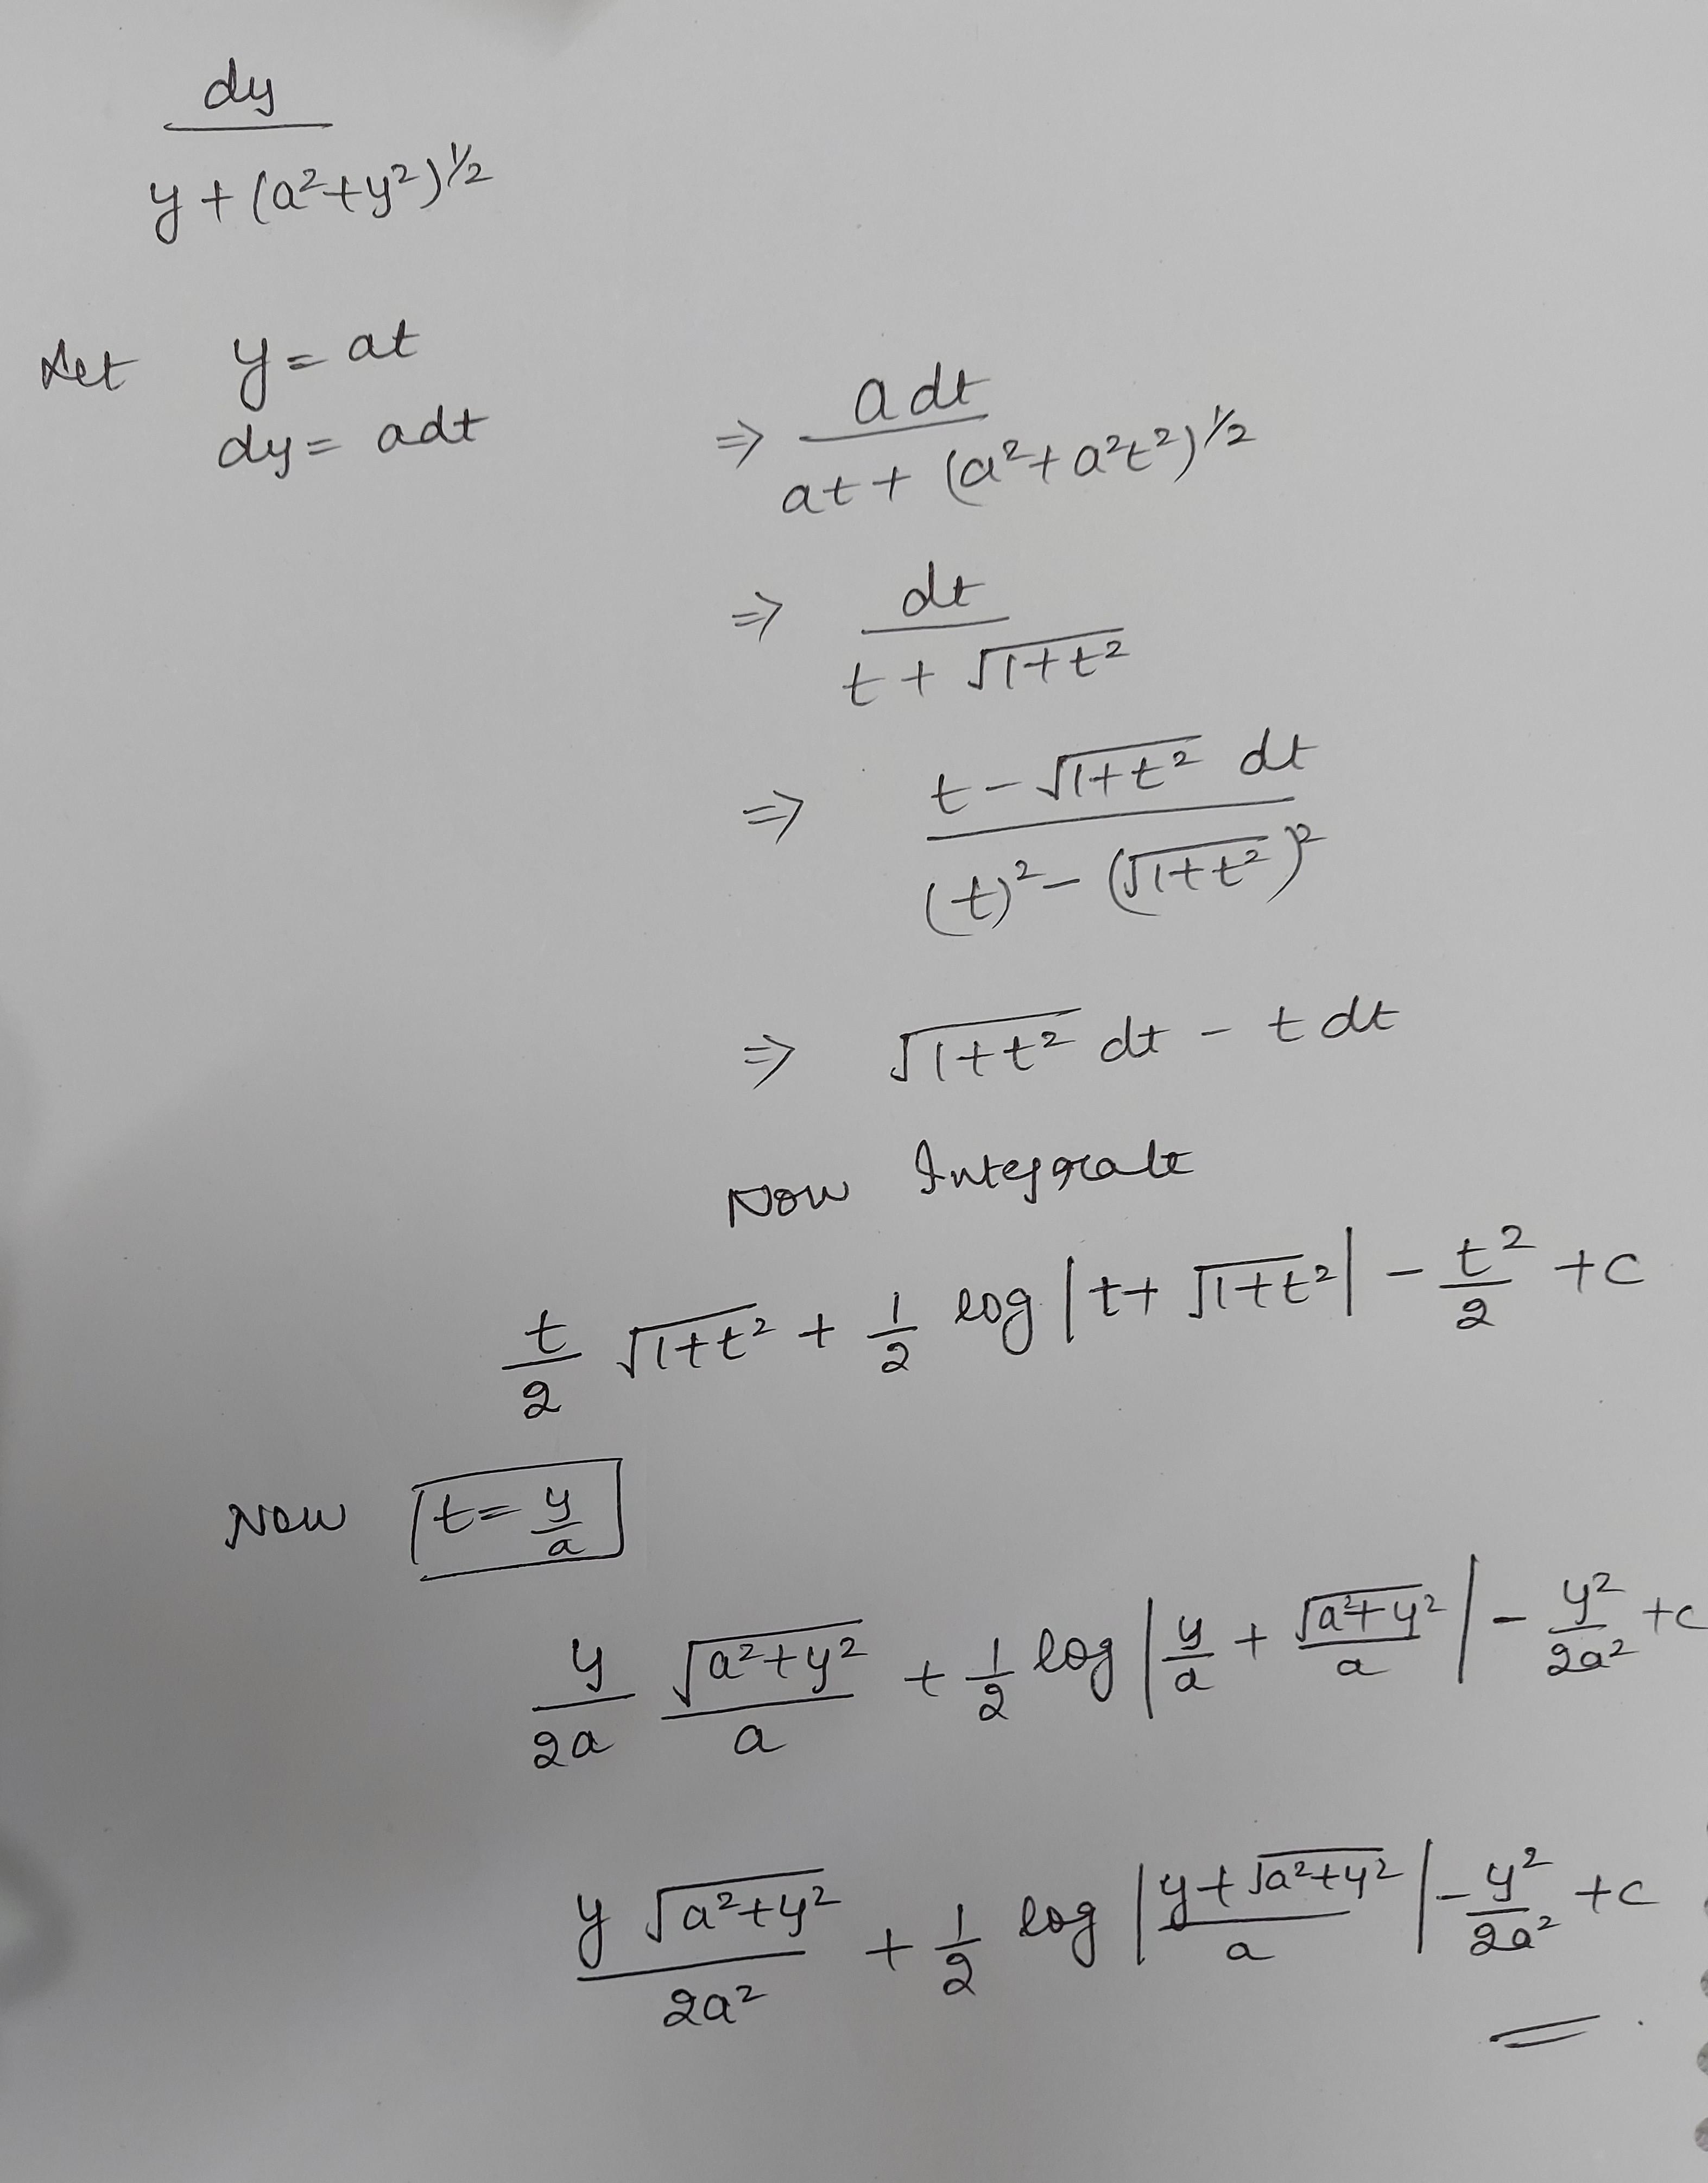 dy
y + (a²+y²)^½
Let y = at
dy = adt
⇒ a dt
at + (a²+a²t²)^½
⇒ dt
t + √1+t²
⇒ t - √1+t² dt
(t)² - (√1+t²)²
⇒ √1+t² dt - t dt
Now Integrate
t/2 √1+t² + 1/2 log |t+ √1+t²| - t²/2 + c
Now t = y/a
y/2a √a²+y²/a + 1/2 log |y/a + √a²+y²/a| - y²/2a² + c
y √a²+y²/2a² + 1/2 log |y+√a²+y²/a| - y²/2a² + c